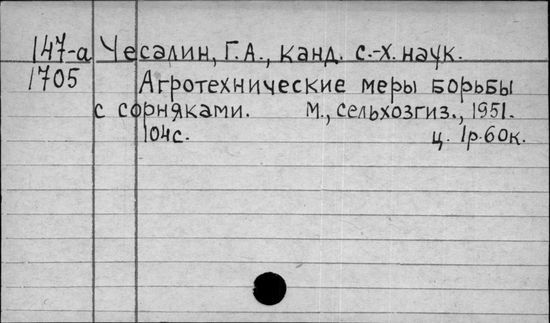 147-а Чесалин, Г.А., канд. с.-х. наук.
1705 Агротехнические меры борьбы
с сорняками. М., сельхозгиз., 1951.
104с. ц. 1р.60к.